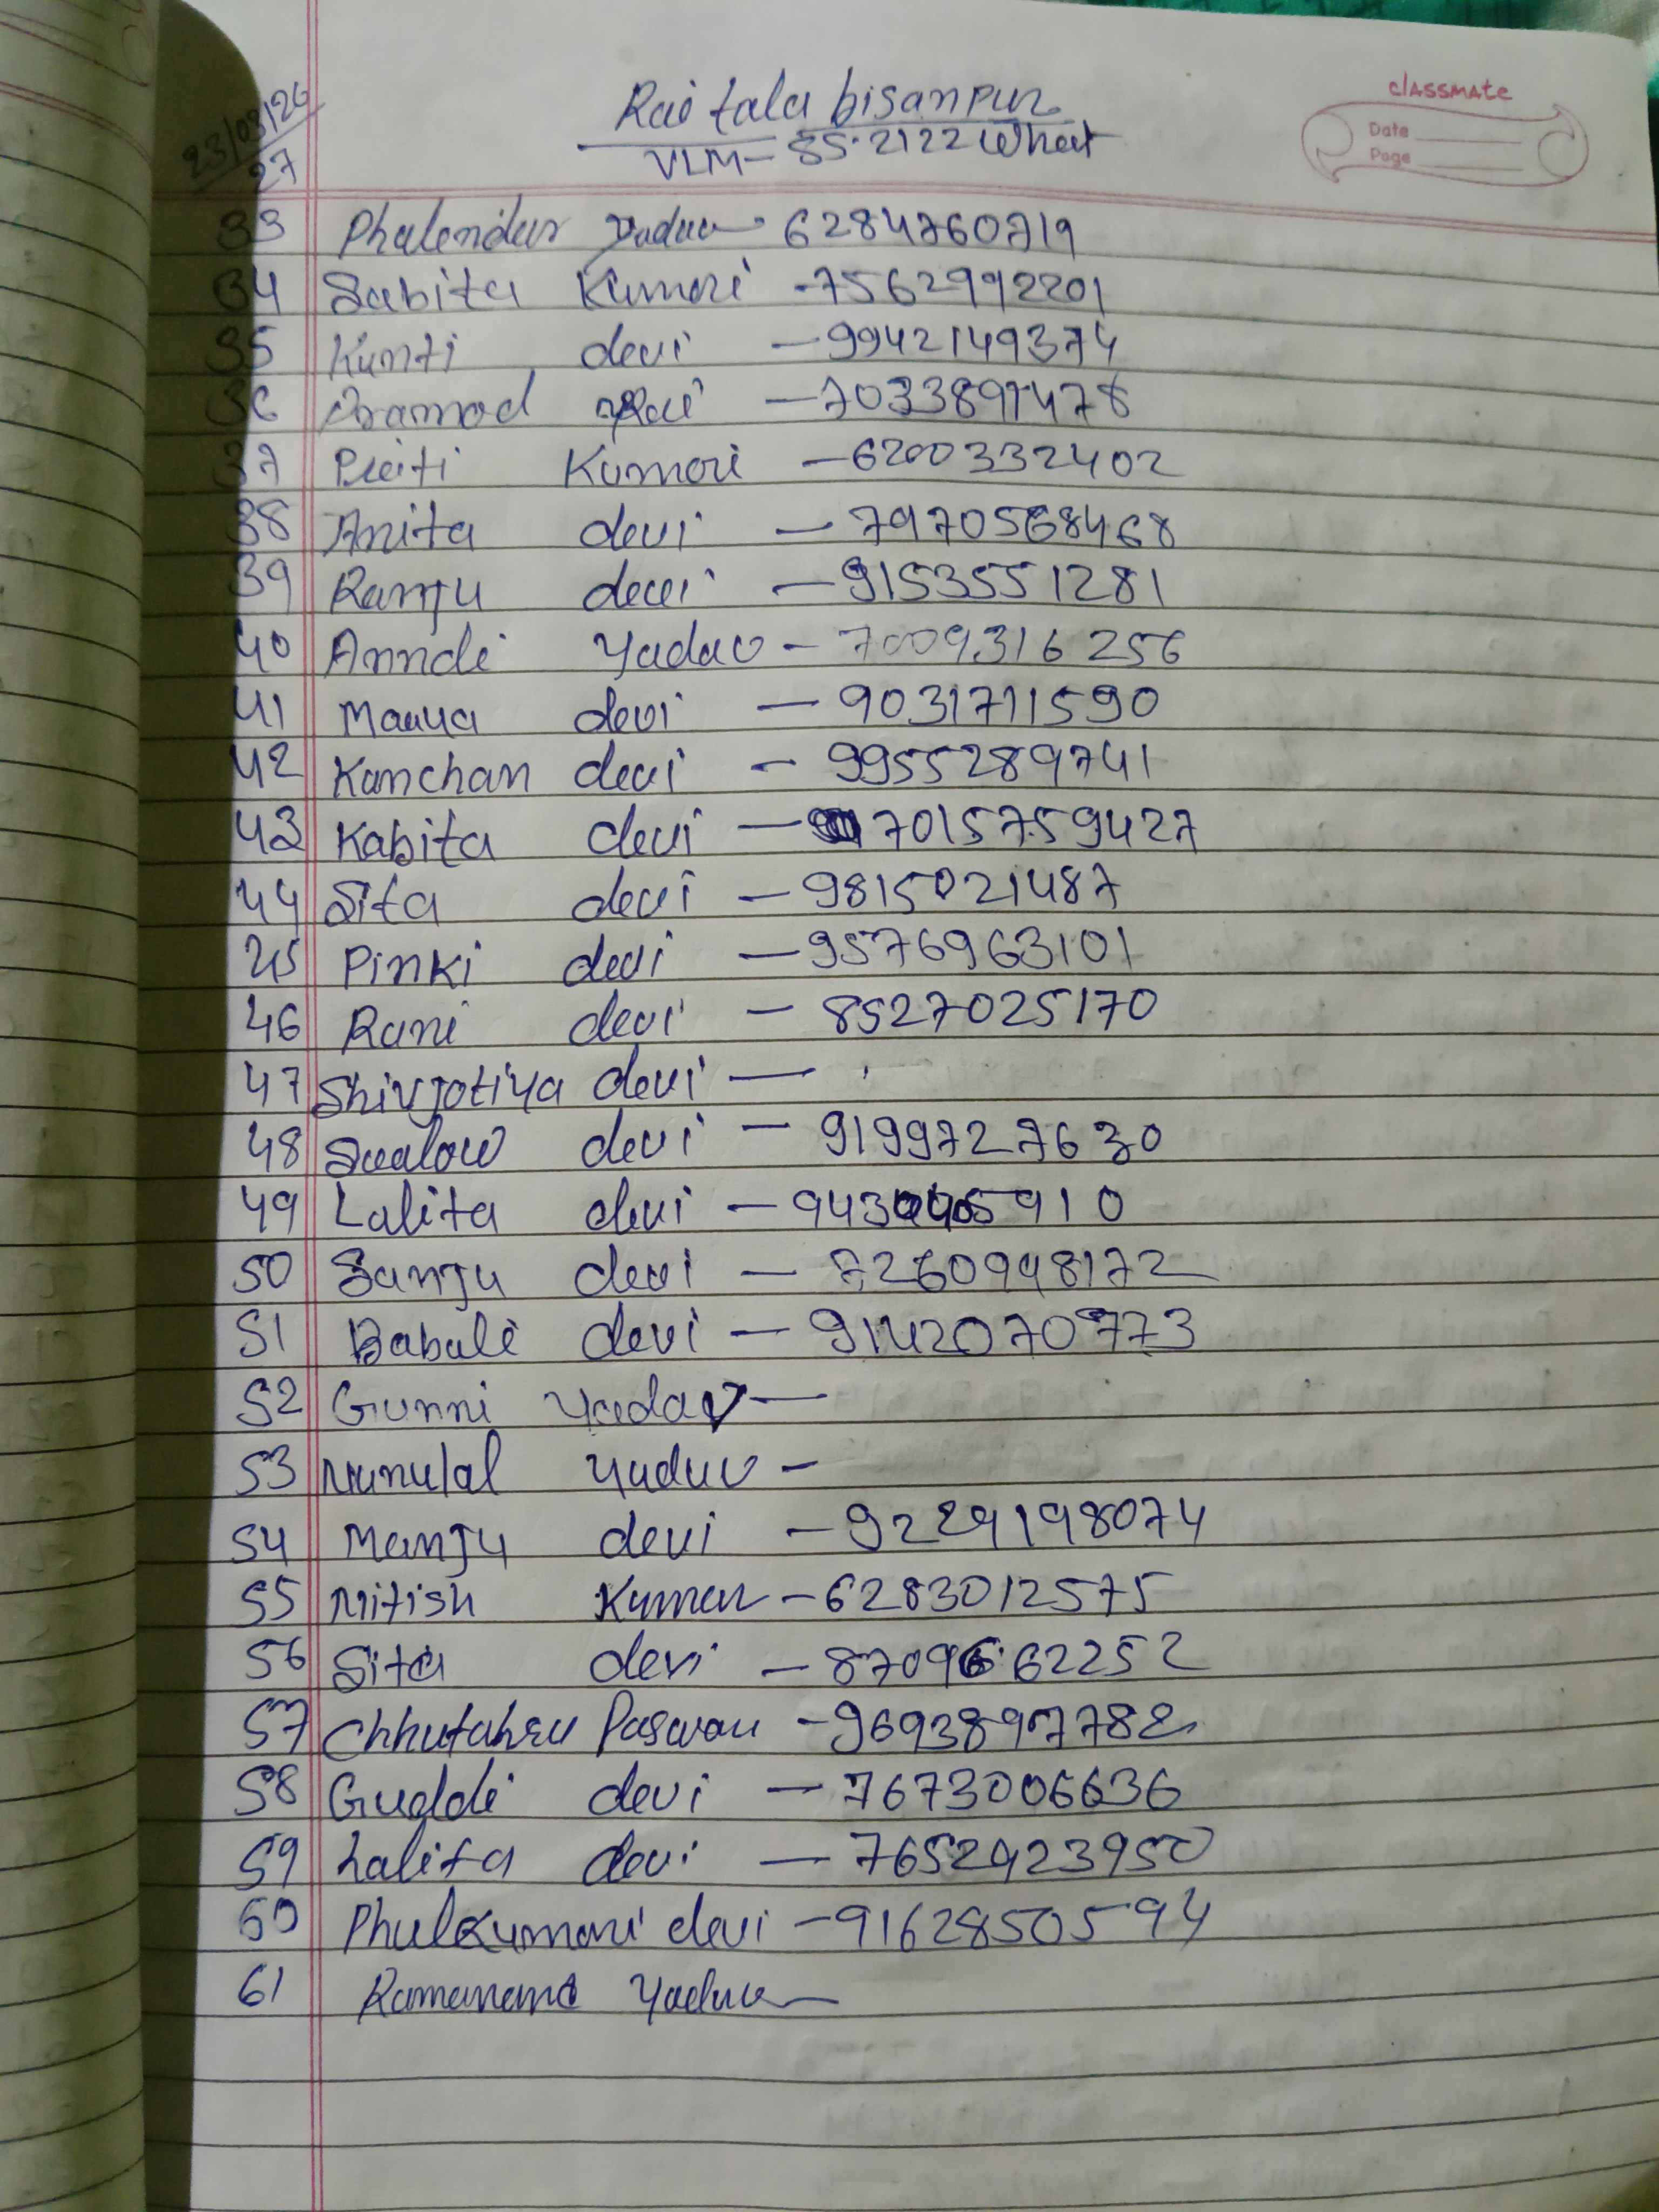 23/03/26
27
Rai tala bisanpur
VLM - 85.2122 Wheat
classmate
Date
Page
33 Phalendar Yadav - 6284760719
34 Sabita Kumari - 7562992201
35 Kunti devi - 9942149374
36 Pramod Rai - 7033891478
37 Priti Kumari - 6200332402
38 Anita devi - 7970568468
39 Ranju devi - 9153551281
40 Anndi Yadav - 7009316256
41 Maaya devi - 9031711590
42 Kanchan devi - 9955289741
43 Kabita devi - 7015759427
44 Sita devi - 9815021487
45 Pinki devi - 9576963101
46 Rani devi - 8527025170
47 Shivjotiya devi -
48 devi - 9199727630
49 Lalita devi -
50 Sanju devi - 7260948172
51 Babali devi - 9142070773
52 Gunni Yadav -
53 Nunulal yadav -
54 Manju devi - 92291198074
55 Nitish Kumar - 6283012575
56 Sita devi - 8709662252
57 Paswan - 9693897782
58 Guddi devi - 7673006636
59 Lalita devi - 7652923950
60 Phulkumari devi - 9162850594
61 Ramanand Yadav -